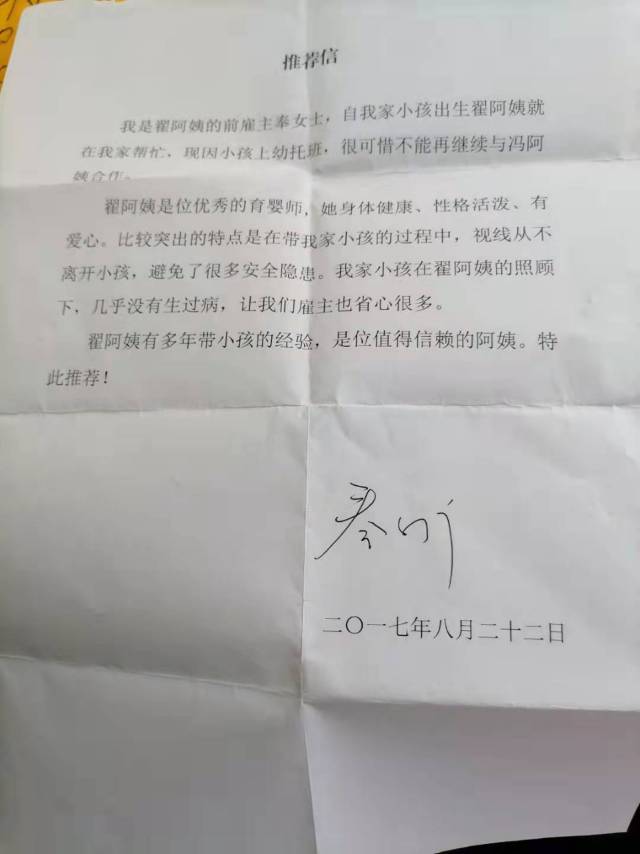 推荐信
我是翟阿姨的前雇主奉女士，自我家小孩出生翟阿姨就
在我家帮忙，现因小孩上幼托班，很可惜不能再继续与冯阿
姨合作。
翟阿姨是位优秀的育婴师，她身体健康、性格活泼、有
爱心。比较突出的特点是在带我家小孩的过程中，视线从不
离开小孩，避免了很多安全隐患。我家小孩在翟阿姨的照顾
下，几乎没有生过病，让我们雇主也省心很多。
翟阿姨有多年带小孩的经验，是位值得信赖的阿姨。特
此推荐！
二〇一七年八月二十二日